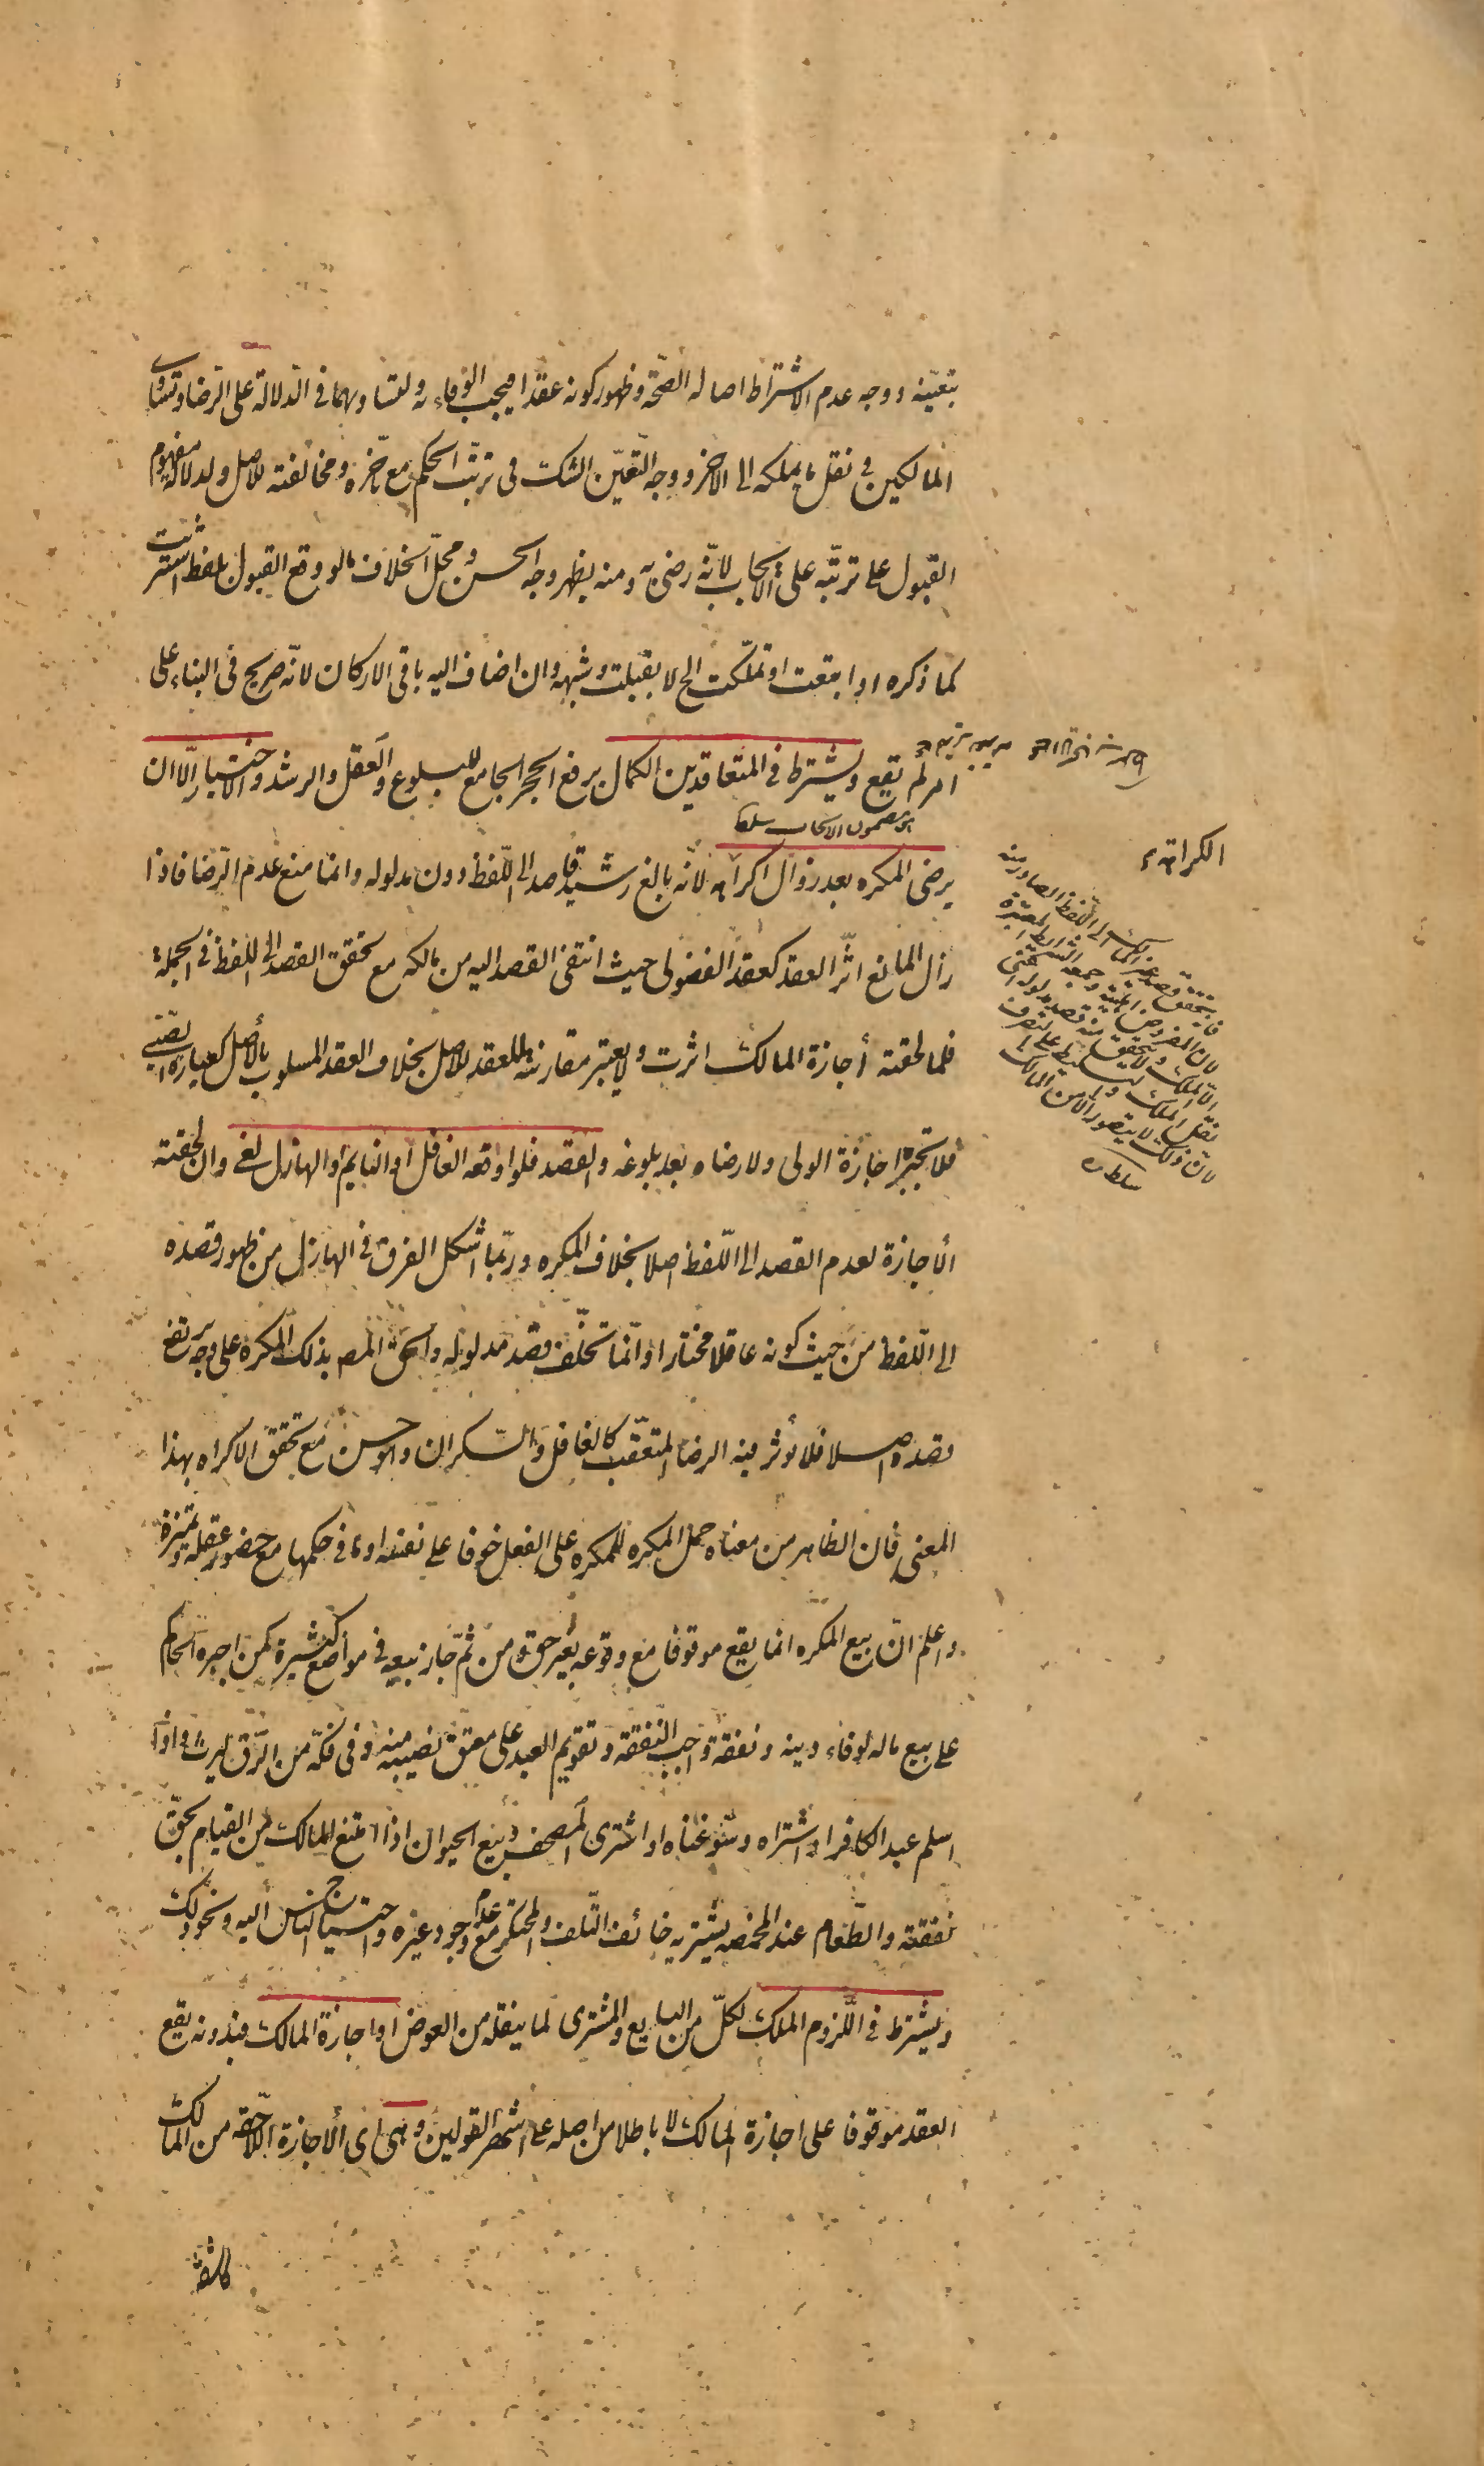 بتعيّنه ووجه عدم الاشتراط اصالة الصحّة وظهور كونه عقدا فيجب الوفاء به ولتساويهما فى الدّلالة على الرّضا وتساوى
المالكين فى نقل ما يملكه الى الاخر ووجه التعيّن الشك فى ترتّب الحكم مع تاخره ومخالفته للاصل ولدلالة مفهوم
القبول على ترتّبه على الايجاب لانّه رضى به ومنه يظهر وجه الحسن ومحلّ الخلاف ما لو وقع القبول بلفظ اشتريت
كما ذكره او ابتعت او تملّكت الخ لا بقبلت وشبهه وان اضاف اليه باقى الاركان لانّه صريح فى البناء على
امر لم يقع ويشترط فى المتعاقدين الكمال برفع الحجر الجامع للبلوغ والعقل والرشد والاختيار الّا ان
يرضى المكره بعد زوال اكراهه لانّه بالغ رشيد قاصد الى اللّفظ دون مدلوله وانما منع عدم الرّضا فاذا
زال المانع اثّر العقد كعقد الفضولى حيث انتفى القصد اليه من مالكه مع تحقق القصد الى اللفظ فى الجملة
فلما لحقته أجازة المالك اثرت ولا يعتبر مقارنتها للعقد للاصل بخلاف العقد المسلوب بالأصل كعبارة الصّبى
فلا تجبره اجازة الولى ولا رضاه بعد بلوغه والقصد فلو اوقعه الغافل او النايم او الهازل لغى وان لحقته
الأجازة لعدم القصد الى اللّفظ اصلا بخلاف المكره وربّما اشكل الفرق فى الهازل من ظهور قصده
الى اللّفظ من حيث كونه عاقلا مختارا وانّما تخلّف قصد مدلوله والحق المصـ بذلك المكره على وجه يرتفع
قصده اصلا فلا يؤثر فيه الرضا المتعقّب كالغافل والسّكران وهو حسن مع تحقق الاكراه بهذا
المعنى فان الظاهر من معناه حمل المكره للمكره على الفعل خوفا على نفسه او ما فى حكمها مع حضور عقله وتميزه
واعلم انّ بيع المكره انما يقع موقوفا مع وقوعه بغير حق ومن ثمّ جاز بيعه فى مواضع كثيرة كمن اجبره الحاكم
على بيع ماله لوفاء دينه ونفقة واجب النّفقة وتقويم العبد على معتق نصيبه منه وفى فكّه من الرّق ليرث واذا
اسلم عبد الكافر او اشتراه وسوغناه او اشترى المصحف وبيع الحيوان اذا امتنع المالك من القيام بحقّ
نفقته والطّعام عند المخمصه يشتريه خائف التّلف والمحتكر مع عدم وجود غيره واحتياج الناس اليه ونحو ذلك
ويشترط فى اللّزوم الملك لكلّ من البايع والمشترى لما ينقله من العوض او اجازة المالك فبدونه يقع
العقد موقوفا على اجازة المالك لا باطلا من اصله على اشهر القولين وهى اى الأجازة اللّاحقه من المالك
الكراهة
فانّه يتحقق قصد غير المالك الى اللّفظ الصادر منه
سلطان
كاشفة